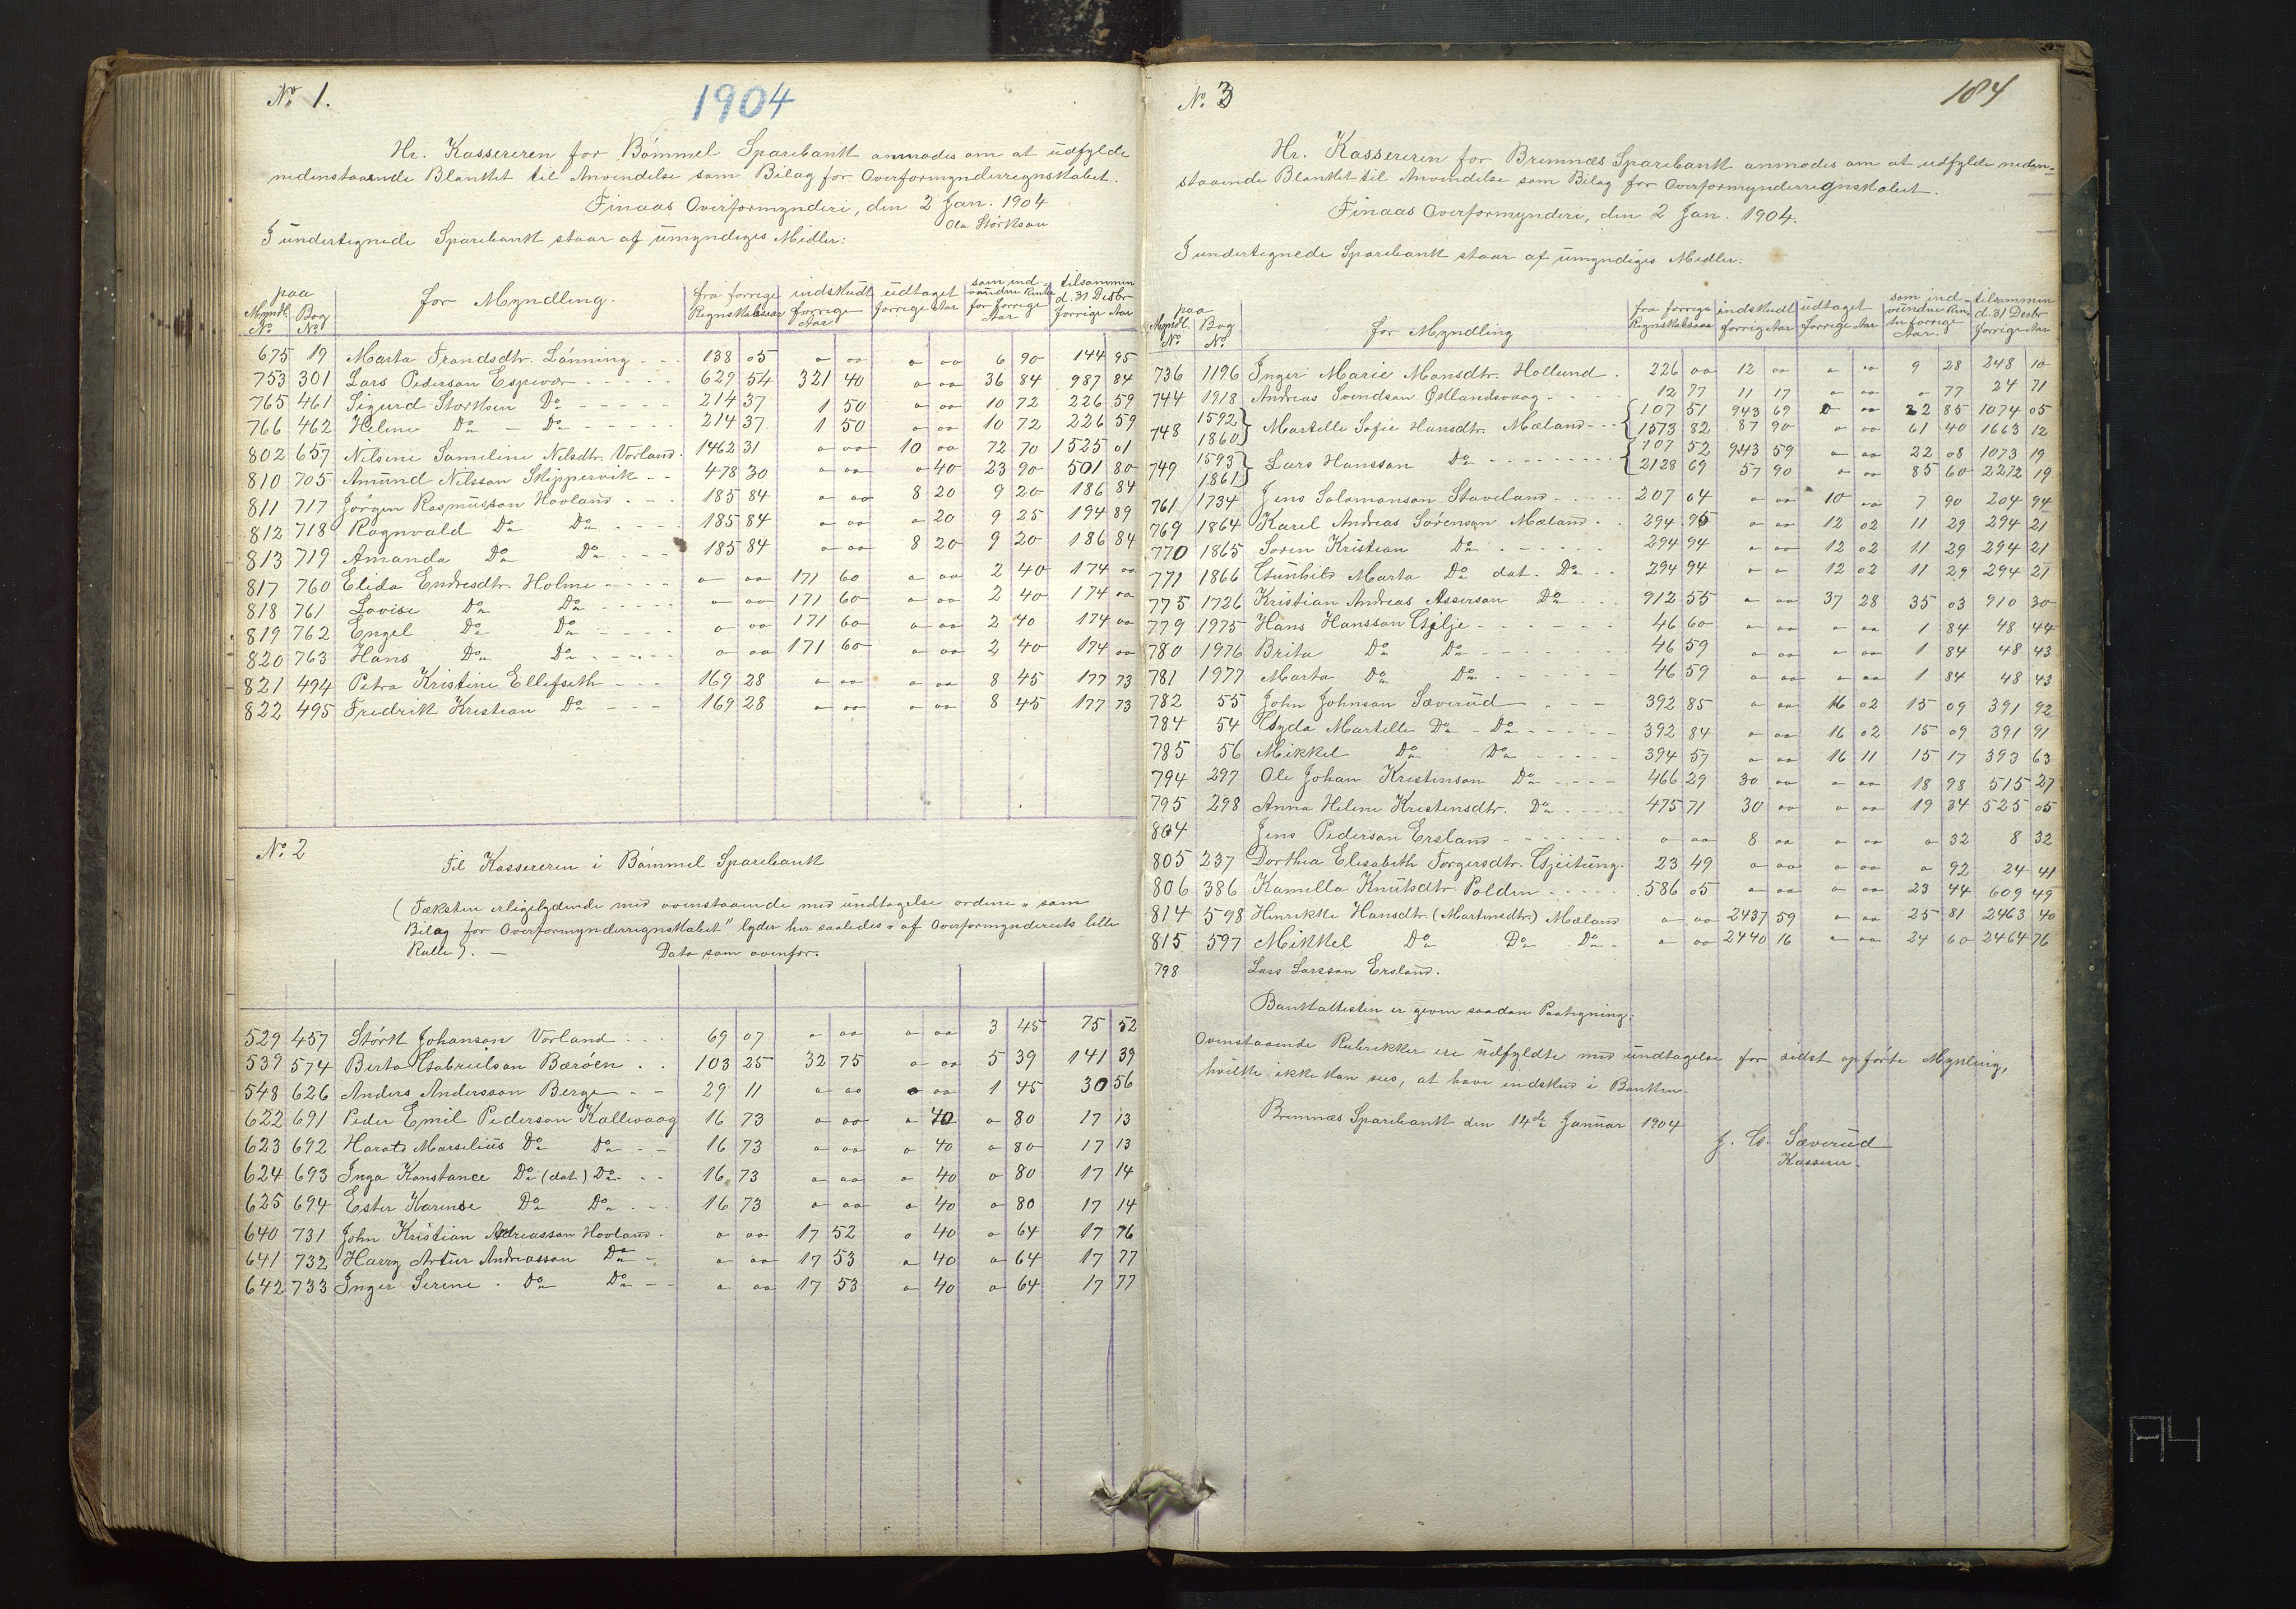 No. 1.
1904
Hr. Kassereren for Bömmel Sparebank anmodes om at udfylde
nedenstaaende Blanket til Anvendelse som Bilag for Overformynderregnskabet.
Finaas Overformynderi, den 2 Jan. 1904
Ola Störkson
I undertegnede Sparebank staar af umyndiges Midler:
paa Myndl. No | Bog No | for Myndling. | fra forrige Regnskabsaar | indskudt forrige Aar | udtaget forrige Aar | som ind-vundne Rente for forrige Aar | tilsammen d. 31 Desbr forrige Aar
675 19 Marta Frandsdtr. Lönning - - - 138 05 " " " " 6 90 144 95
753 301 Lars Pederson Espevær - - - - - 629 54 321 40 " " 36 84 987 84
765 461 Sigurd Storksen Do - - - - - 214 37 1 50 " " 10 72 226 59
766 462 Helene Do - Do - - - - - 214 37 1 50 " " 10 72 226 59
802 657 Nilsine Sameline Nilsdtr. Vorland. 1462 31 " " 10 " 72 70 1525 01
810 705 Amund Nilsson Skippervik - - 478 30 " " " 40 23 90 501 80
811 717 Jörgen Rasmusson Hovland - - - 185 84 " " 8 20 9 20 186 84
812 718 Ragnvald Do Do - - - - 185 84 " " " 20 9 25 194 89
813 719 Amanda Do Do - - - 185 84 " " 8 20 9 20 186 84
817 760 Elida Endresdtr. Holme - - - - " " 171 60 " " 2 40 174 "
818 761 Lovise Do Do - - - - - " " 171 60 " " 2 40 174 "
819 762 Engel Do Do - - - - " " 171 60 " " 2 40 174 "
820 763 Hans Do Do - - - - - " " 171 60 " " 2 40 174 "
821 494 Petra Kristine Ellefseth - - - 169 28 " " " " 8 45 177 73
822 495 Fredrik Kristian Do - - - 169 28 " " " " 8 45 177 73
No. 2
Til Kassereren i Bömmel Sparebank
(Tæksten erligelydende med ovenstaaende med undtagelse ordene "som
Bilag for Overformynderregnskabet" lyder her saaledes "af Overformynderiets lille
Rulle). — Dato som ovenfor.
529 457 Störk Johanson Vorland - - - 69 07 " " " " 3 45 75 52
539 574 Berta Gabrielson Bæröen . . 103 25 32 75 " " 5 39 141 39
548 626 Anders Andersson Berge - - 29 11 " " " " 1 45 30 56
622 691 Peder Emil Pederson Kallevaag 16 73 " " " 40 " 80 17 13
623 692 Harald Marselius Do Do - - 16 73 " " " 40 " 80 17 13
624 693 Inga Konstance Do (dat) Do - - 16 73 " " " 40 " 80 17 14
625 694 Ester Karense Do Do - - - 16 73 " " " 40 " 80 17 14
640 731 John Kristian Andreasson Hovland - " " 17 52 " 40 " 64 17 76
641 732 Harry Artur Andreasson Do - " " 17 53 " 40 " 64 17 77
642 733 Inger Serine . Do Do - - " " 17 53 " 40 " 64 17 77
No. 3
184
Hr. Kassereren for Bremnæs Sparebank anmodes om at udfylde neden-
staaende Blanket til Anvendelse som Bilag for Overformynderregnskabet.
Finaas Overformynderi, den 2 Jan. 1904.
I undertegnede Sparebank staar af umyndiges Midler:
paa Myndl. No | Bog No. | for Myndling | fra forrige Regnskabsaar | indskudt forrige Aar | udtaget forrige Aar | som ind-vundne Ren-te forrige Aar. | tilsammen d. 31 Desbr forrige Aar
736 1196 Inger Marie Monsdtr. Hollund . 226 " 12 " " " 9 28 248 10
744 1918 Andreas Svendson Östlandsvaag - - - 12 77 11 17 " " " 77 24 71
748 1592 } Martelle Sofie Hansdtr. Mæland - - - { 107 51 943 69 " " 22 85 1074 05
1860 } { 1573 82 87 90 " " 61 40 1663 12
749 1593 } Lars Hansson Do - - - - - - - - - { 107 52 943 59 " " 22 08 1073 19
1861 } { 2128 69 57 90 " " 85 60 2272 19
761 1734 Jens Salomonson Staveland - - - - 207 04 " " 10 " 7 90 204 94
769 1864 Karel Andreas Sörenson Mæland . . 294 95 " " 12 02 11 29 294 21
770 1865 Soren Kristian Do - - - - - - 294 94 " " 12 02 11 29 294 21
771 1866 Gunhild Marta Do dat. Do - - 294 94 " " 12 02 11 29 294 21
775 1726 Kristian Andreas Asserson Do - - - 912 55 " " 37 28 35 03 910 30
779 1975 Hans Hansson Gilje - - - - - - 46 60 " " " " 1 84 48 44
780 1976 Brita Do Do - - - - - - - 46 59 " " " " 1 84 48 43
781 1977 Marta Do Do - - - - - - 46 59 " " " " 1 84 48 43
782 55 John Johnson Sæverud - - - 392 85 " " 16 02 15 09 391 92
784 54 Gyda Martelle Do - Do - - - - - 392 84 " " 16 02 15 09 391 91
785 56 Mikkel Do Do - - - - - - 394 57 " " 16 11 15 17 393 63
794 297 Ole Johan Kristenson Do - - - - 466 29 30 " " " 18 98 515 27
795 298 Anna Helene Kristensdtr. Do - - - - 475 71 30 " " " 19 34 525 05
804 Jens Pederson Ersland - - - - - - - " " 8 " " " " 32 8 32
805 237 Dorthea Elisabeth Torgersdtr. Gjeitung. 23 49 " " " " " 92 24 41
806 386 Kamilla Knutsdtr Polden - - - - - 586 05 " " " " 23 44 609 49
814 598 Henrikke Hansdtr. (Martinsdtr.) Mæland " " 2437 59 " " 25 81 2463 40
815 597 Mikkel Do Do Do - " " 2440 16 " " 24 60 2464 76
798 Lars Larsson Ersland.
Bankattesten er given saadan Paategning:
Ovenstaaende Rubrikker ere udfyldte med undtagelse for sidst opförte Mynling,
hvilke ikke kan sees, at have indskud i Banken.
Bremnæs Sparebank den 14de Januar 1904
J. G. Sæverud
Kasserer.
A4